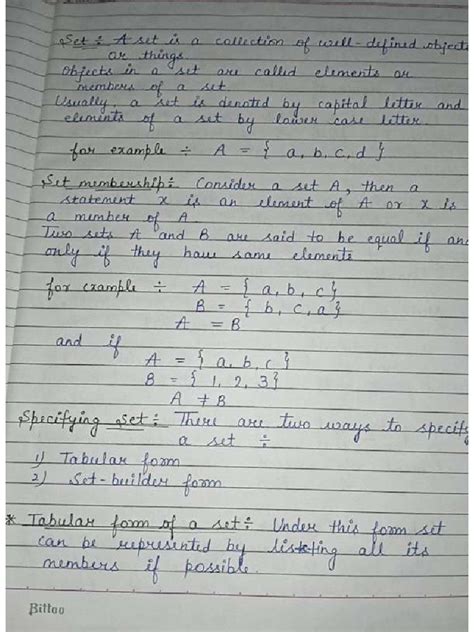 Set ÷ A set is a collection of well-defined objects
or things.
objects in a set are called elements or
members of a set.
Usually, a set is denoted by capital letter and
elements of a set by lower case letter.
for example ÷ A = { a, b, c, d }
Set membership ÷ Consider a set A, then a
statement x is an element of A or x is
a member of A.
Two sets A and B are said to be equal if and
only if they have same elements
for example ÷ A = { a, b, c }
B = { b, c, a }
A = B
and if
A = { a, b, c }
B = { 1, 2, 3 }
A ≠ B
Specifying Set ÷ There are two ways to specify
a set ÷
1) Tabular form
2) Set-builder form
* Tabular form of a set ÷ Under this form set
can be represented by listing all its
members if possible.
Bittoo